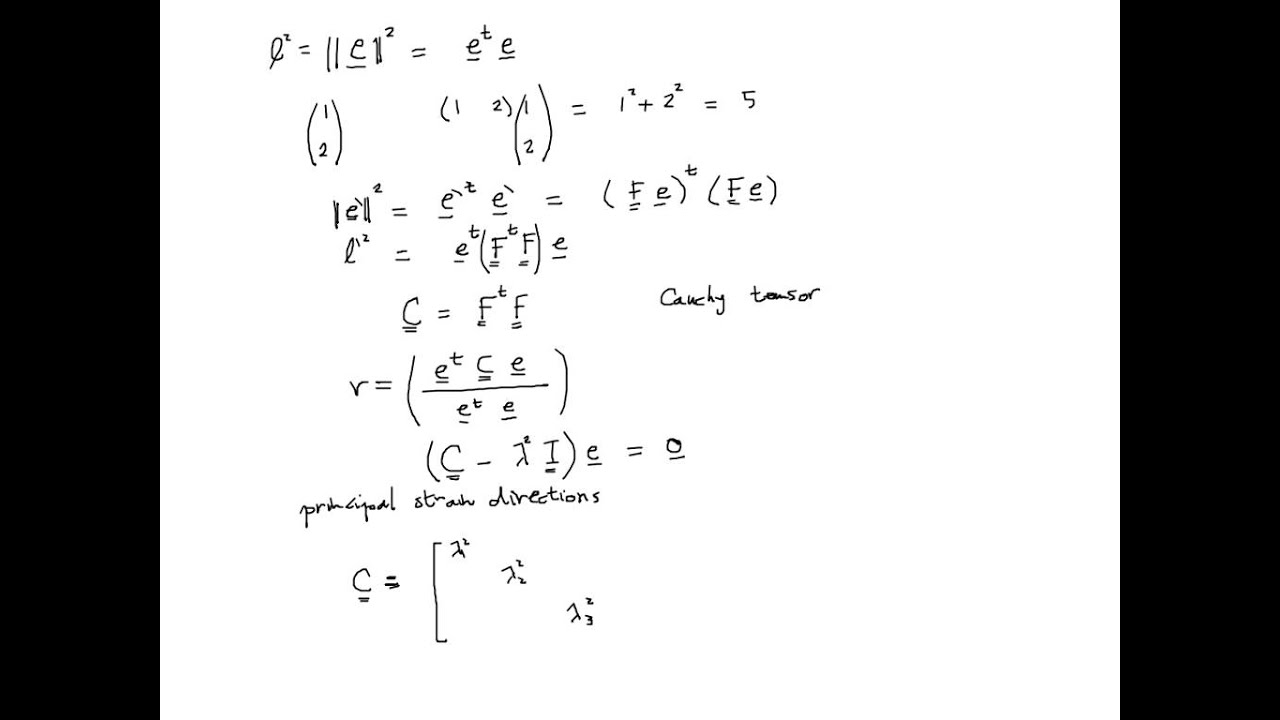 l² = ||e||² = eᵗ e
(1 2) (1 2)(1 2) = 1² + 2² = 5
||e`||² = e`ᵗ e` = (F e)ᵗ (F e)
l`² = eᵗ(Fᵗ F) e
C = Fᵗ F Cauchy tensor
r = (eᵗ C e / eᵗ e)
(C - λ² I) e = 0
principal strain directions
C = [λ₁² λ₂² λ₃²